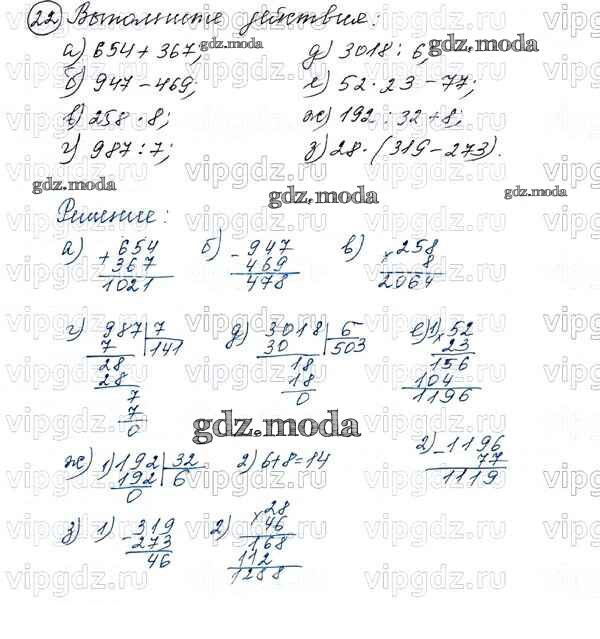 22 Выполните действия:
а) 654 + 367;
б) 947 - 469;
в) 258 · 8;
г) 987 : 7;
д) 3018 : 6;
е) 52 · 23 - 77;
ж) 192 : 32 + 8;
з) 28 · (319 - 273).
Решение:
а) + 654
367
1021
б) - 947
469
478
в) × 258
8
2064
г) 987 | 7
7 141
28
28
7
7
0
д) 3018 | 6
30 503
18
18
0
е) 1) × 52
23
156
104
1196
2) - 1196
77
1119
ж) 1) 192 | 32
192 6
0
2) 6+8=14
з) 1) - 319
273
46
2) × 28
46
168
112
1288
gdz.moda
gdz.moda
gdz.moda
gdz.moda
gdz.moda
gdz.moda
gdz.moda
vipgdz.com